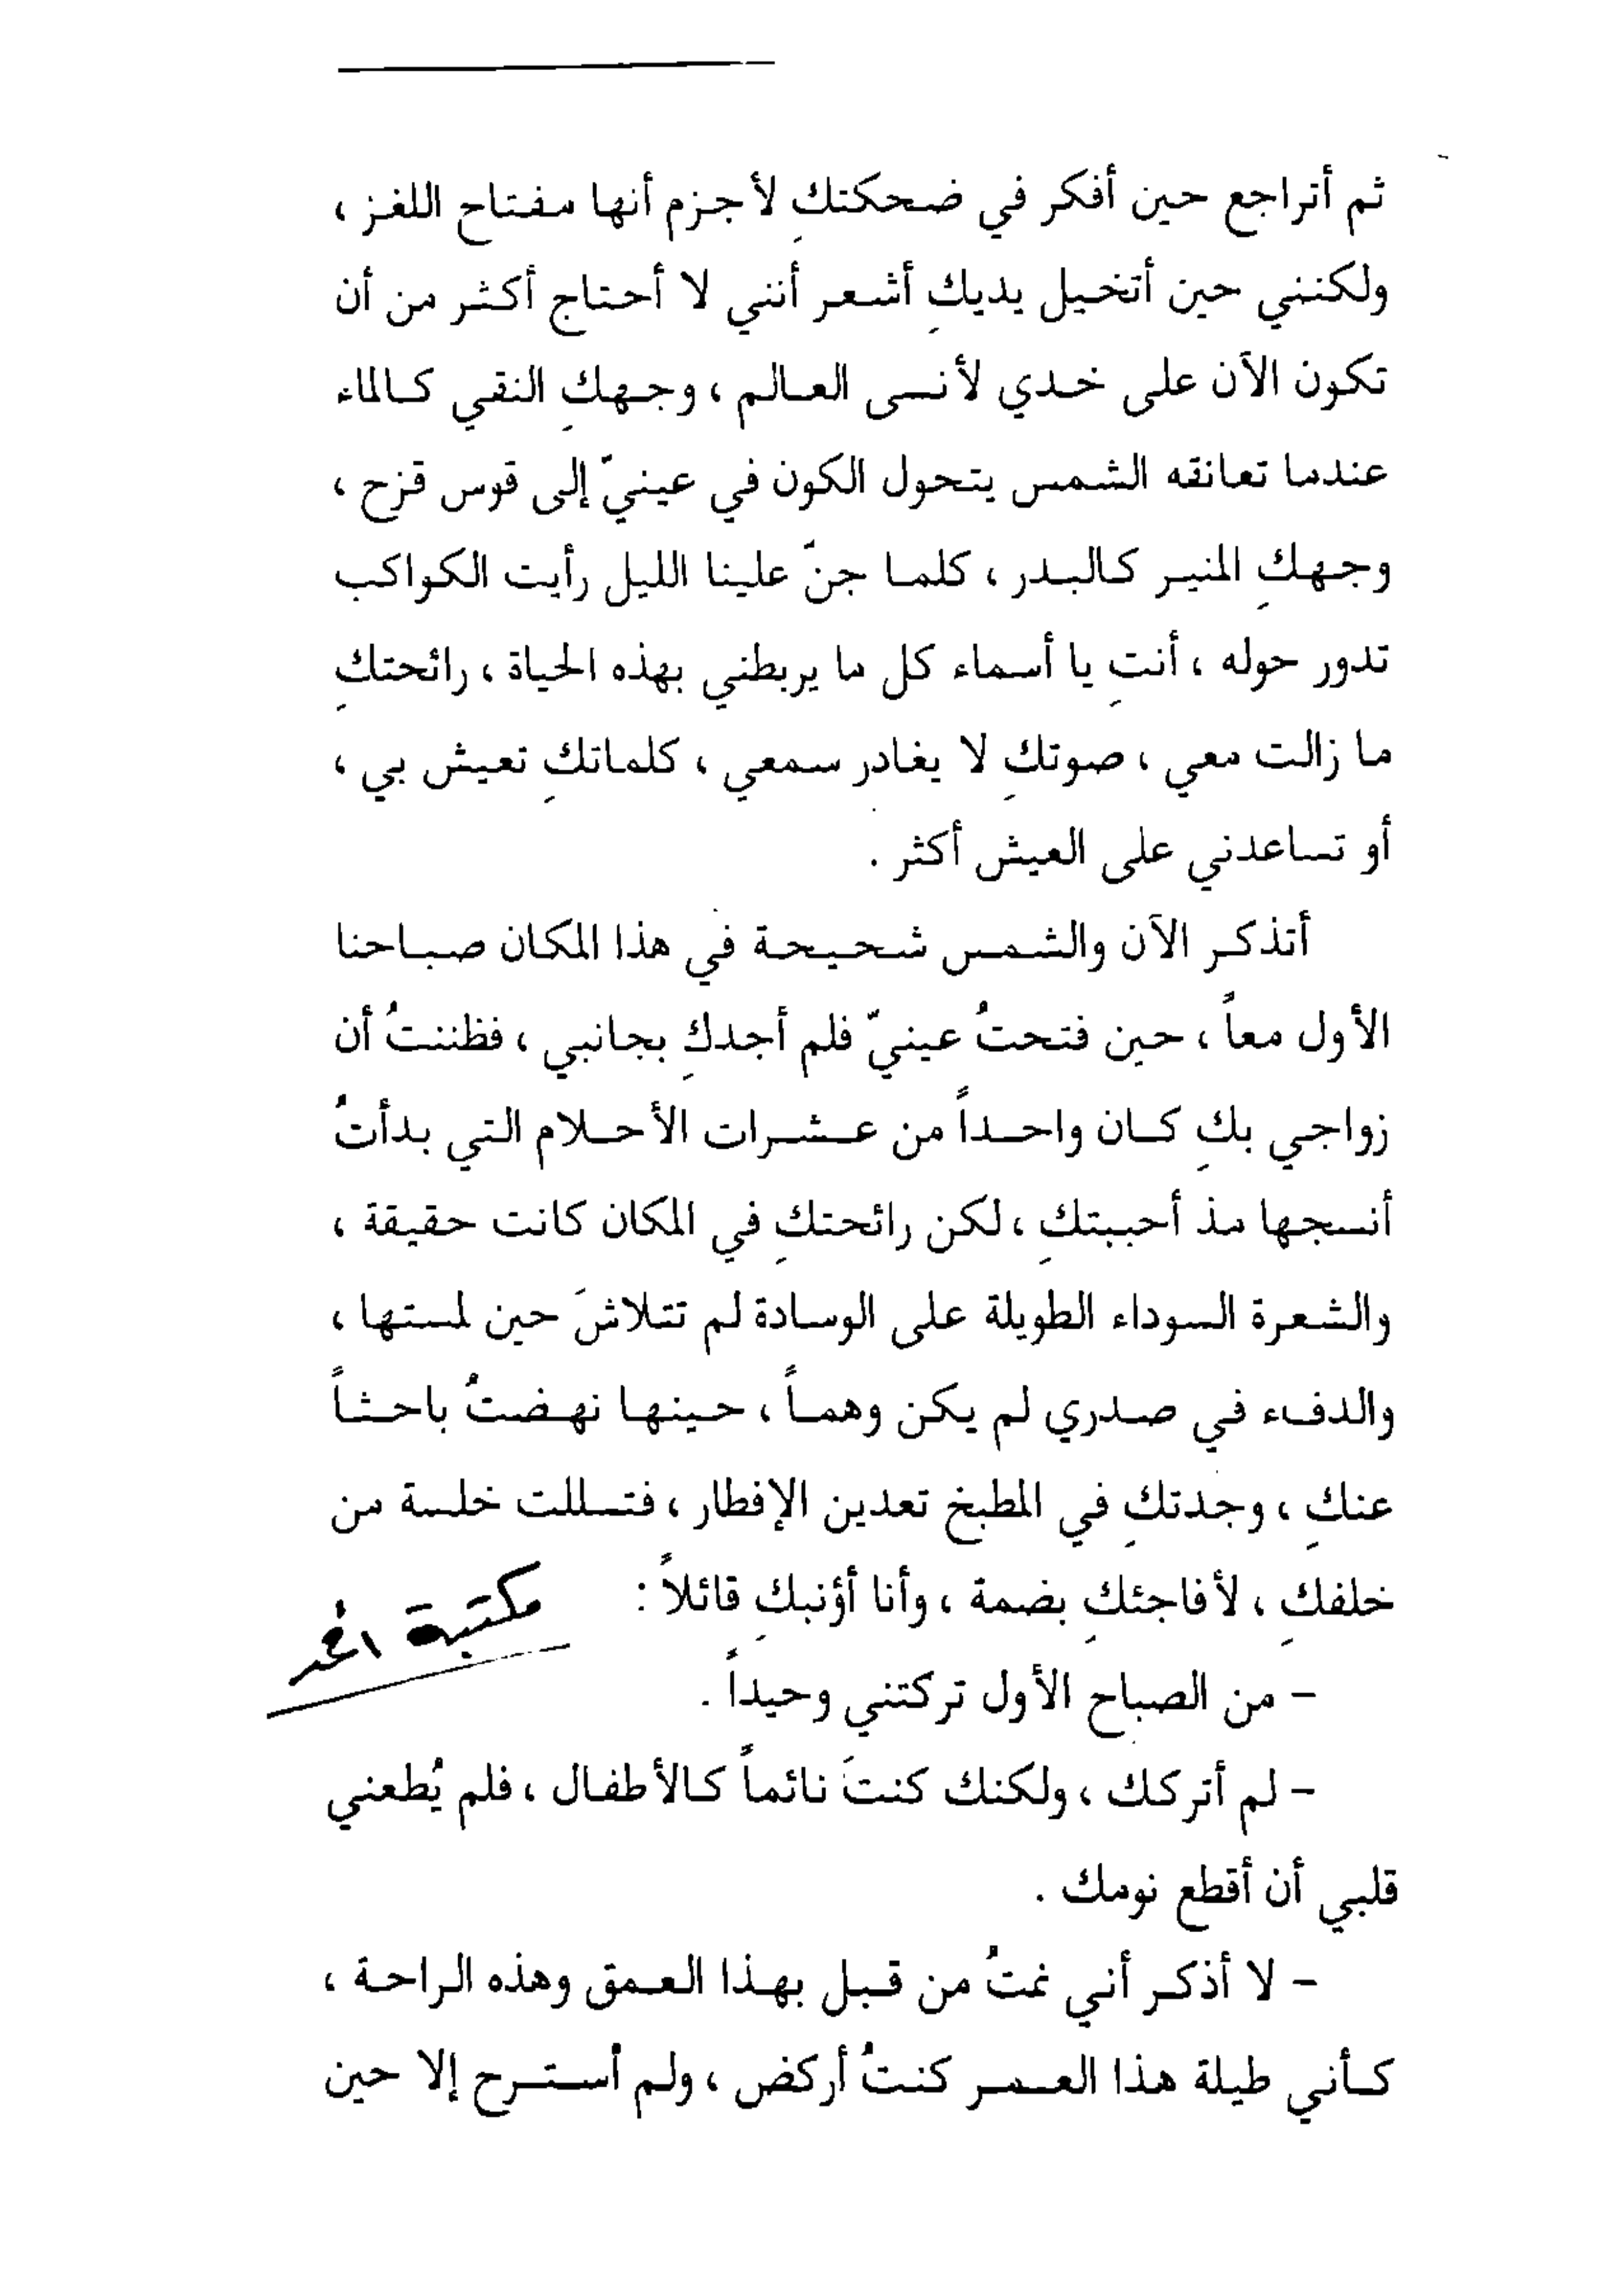 ثم أتراجع حين أفكر في ضحكتكِ لأجزم أنها مفتاح اللغز ،
ولكنني حين أتخيل يديكِ أشعر أنني لا أحتاج أكثر من أن
تكون الآن على خدي لأنسى العالم ، وجهكِ النقي كالماء
عندما تعانقه الشمس يتحول الكون في عينيّ إلى قوس قزح ،
وجهكِ المنير كالبدر ، كلما جنّ علينا الليل رأيت الكواكب
تدور حوله ، أنتِ يا أسماء كل ما يربطني بهذه الحياة ، رائحتكِ
ما زالت معي ، صوتكِ لا يغادر سمعي ، كلماتكِ تعيش بي ،
أو تساعدني على العيش أكثر .
أتذكر الآن والشمس شحيحة في هذا المكان صباحنا
الأول معاً ، حين فتحتُ عينيّ فلم أجدكِ بجانبي ، فظننتُ أن
زواجي بكِ كان واحداً من عشرات الأحلام التي بدأتُ
أنسجها مذ أحببتكِ ، لكن رائحتكِ في المكان كانت حقيقة ،
والشعرة السوداء الطويلة على الوسادة لم تتلاشَ حين لمستها ،
والدفء في صدري لم يكن وهماً ، حينها نهضتُ باحثاً
عنكِ ، وجدتكِ في المطبخ تعدين الإفطار ، فتسللت خلسة من
خلفكِ ، لأفاجئكِ بضمة ، وأنا أؤنبكِ قائلاً :
مكتبة
– من الصباح الأول تركتني وحيداً .
– لم أتركك ، ولكنك كنتَ نائماً كالأطفال ، فلم يُطعني
قلبي أن أقطع نومك .
– لا أذكر أني نمتُ من قبل بهذا العمق وهذه الراحة ،
كأني طيلة هذا العمر كنتُ أركض ، ولم أسترح إلا حين